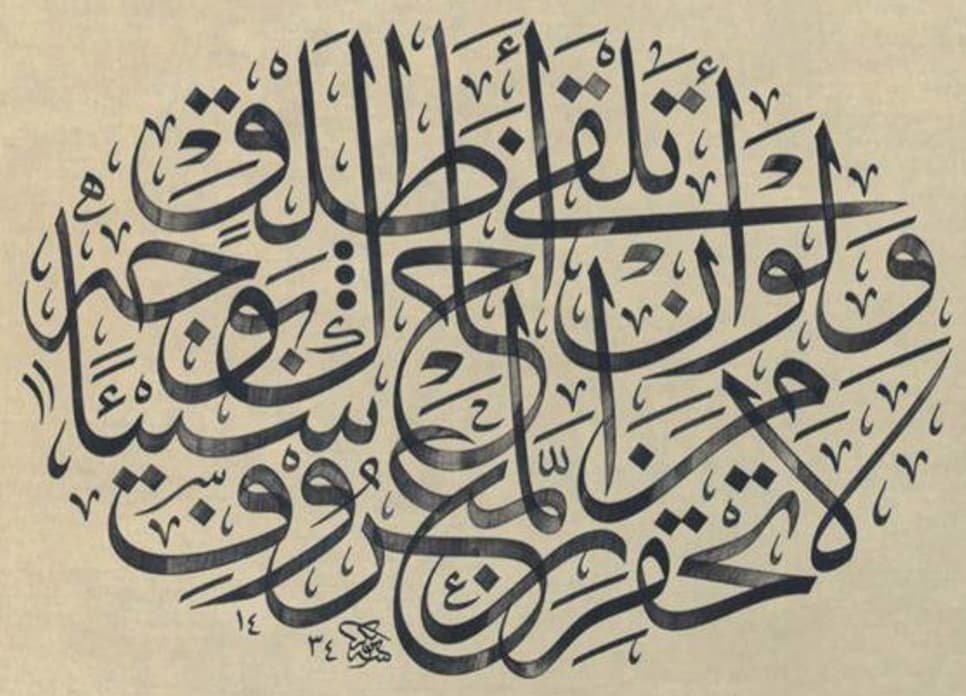 لا تحقرن من المعروف شيئاً
ولو أن تلقى أخاك بوجه طلق
١٤٣٤